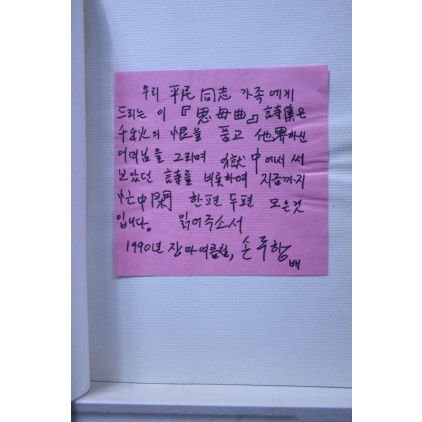 우리 平民同志 가족에게
드리는 이 『思母曲』 詩集은
千秋의 恨을 품고 他界하신
어머님을 그리며 獄中에서 써
보았던 詩를 비롯하여 지금까지
忙中閑 한편 두편 모은것
입니다. 읽어주소서
1990년 장마여름철, 손주항